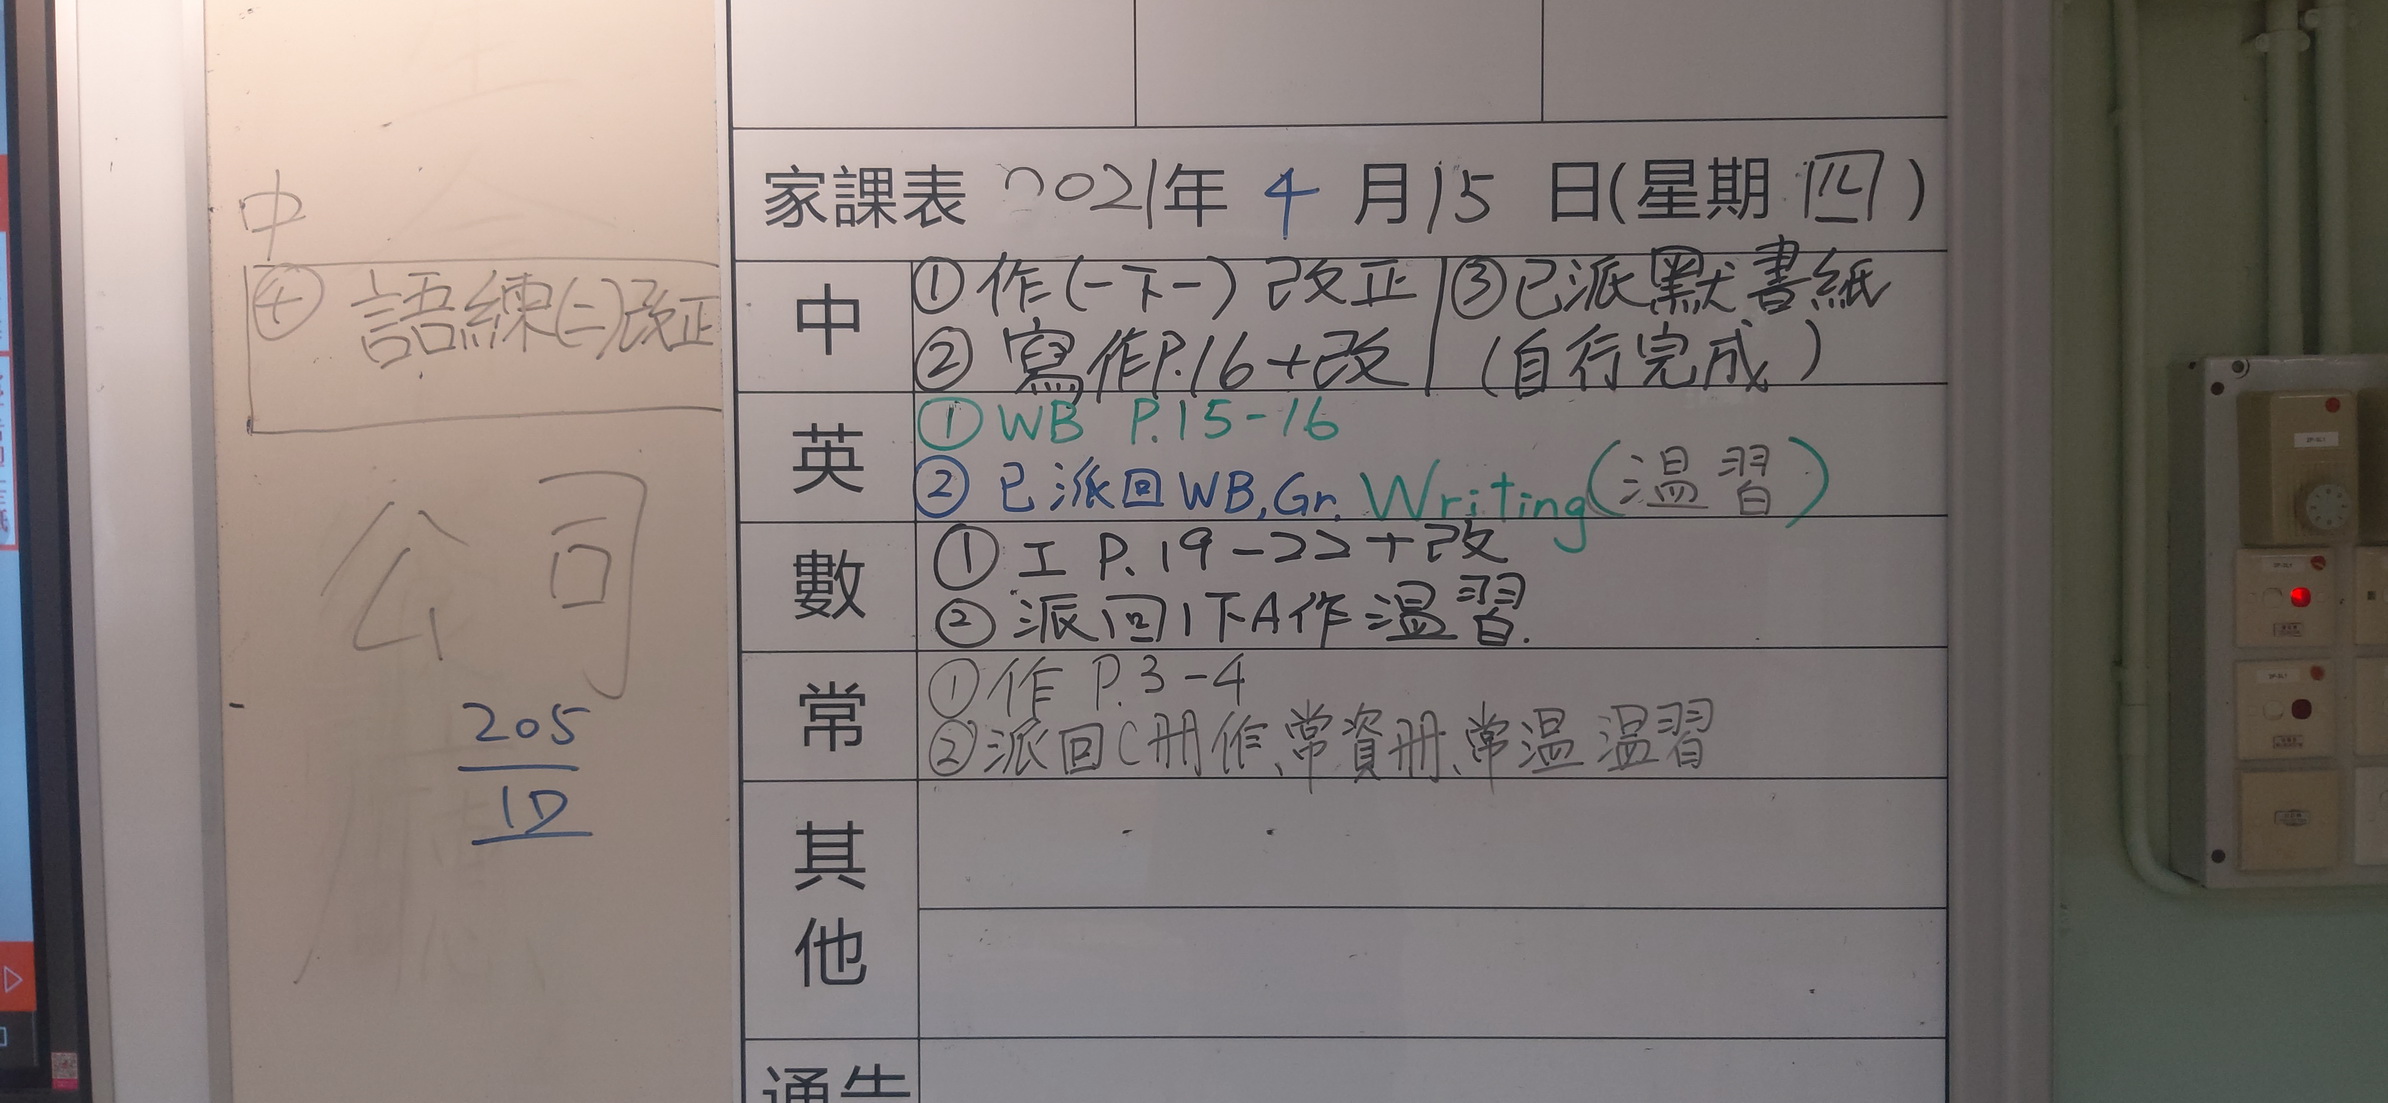 中
④ 語練(二)改正
公司
205
1D
家課表 2021年 4 月 15 日(星期 四)
中
① 作(一下一) 改正
② 寫作P.16+改
③ 已派默書紙
(自行完成)
英
① WB P.15-16
② 已派回WB, Gr. Writing(溫習)
數
① 工 P.19-22+改
② 派回1下A作溫習.
常
① 作 P.3-4
② 派回C冊作、常資冊、常溫 溫習
其他
通告